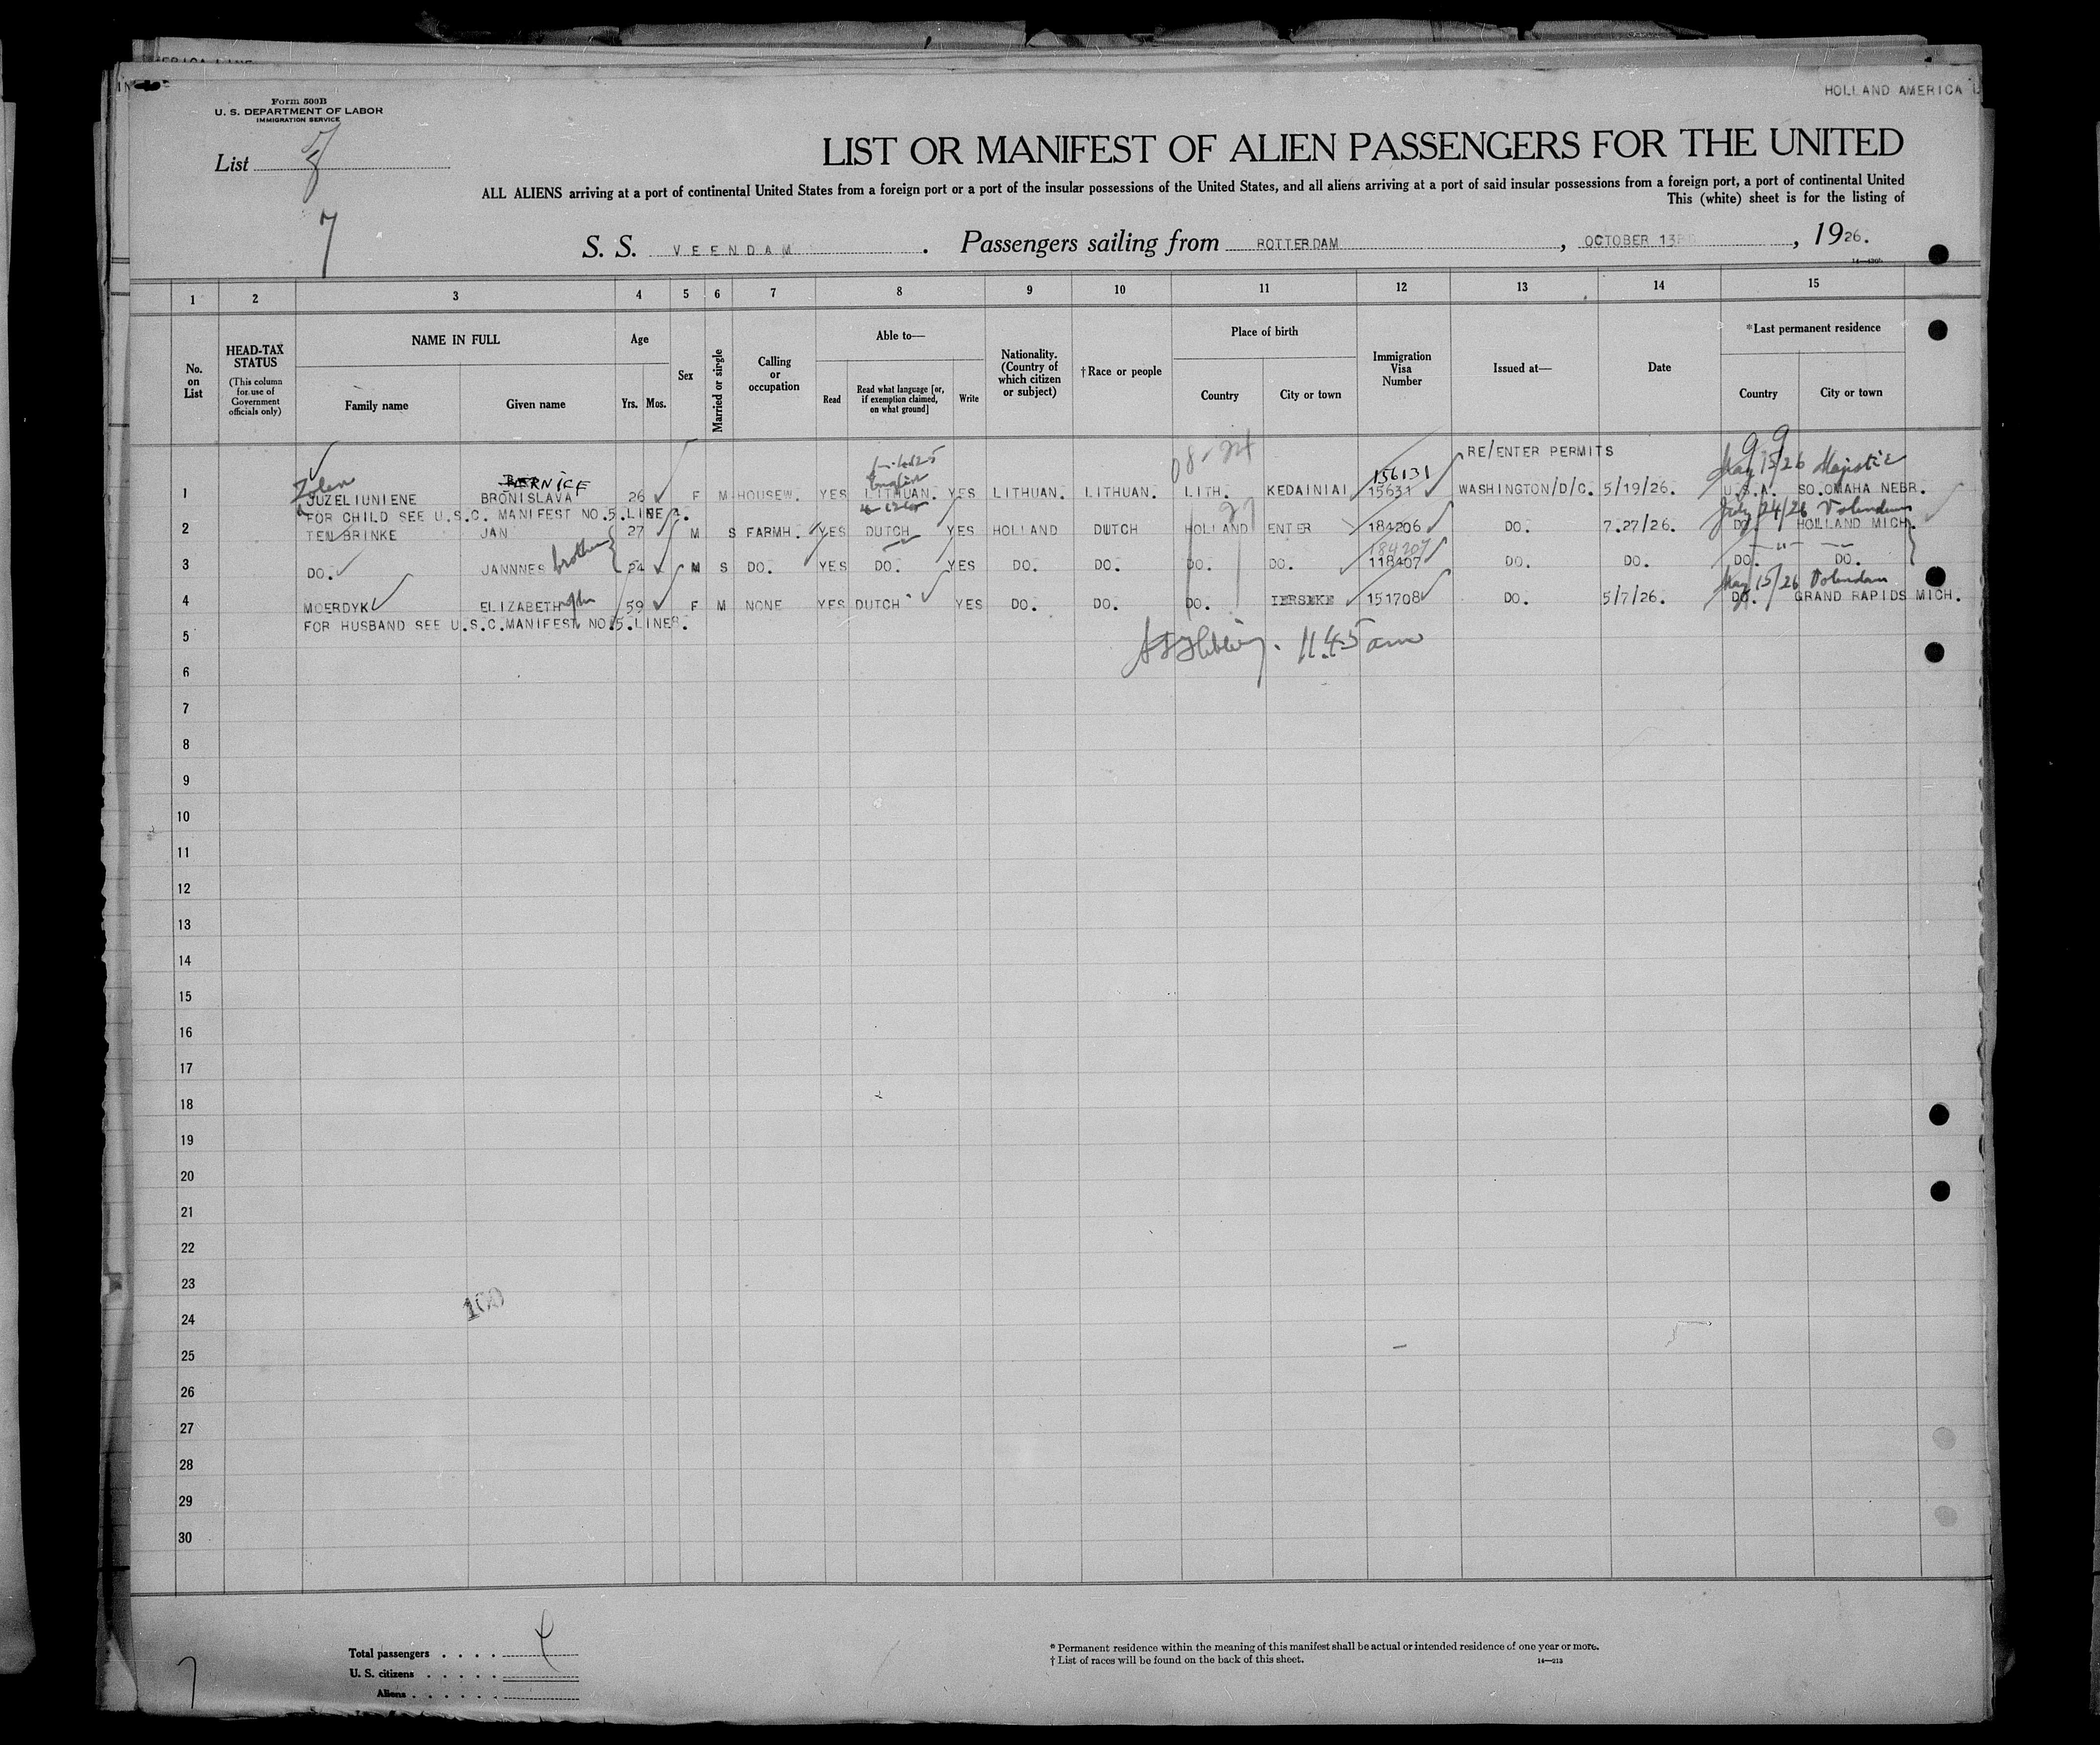 HOLLAND AMERICA
Form 500B
U. S. DEPARTMENT OF LABOR
IMMIGRATION SERVICE
List
7
LIST OR MANIFEST OF ALIEN PASSENGERS FOR THE UNITED
ALL ALIENS arriving at a port of continental United States from a foreign port or a port of the insular possessions of the United States, and all aliens arriving at a port of said insular possessions from a foreign port, a port of continental United
This (white) sheet is for the listing of
S. S. VEENDAM. Passengers sailing from ROTTERDAM, OCTOBER 13, 1926.
1 2 3 4 5 6 7 8 9 10 11 12 13 14 15
No. on List
HEAD-TAX STATUS
(This column for use of Government officials only)
NAME IN FULL
Family name Given name
Age
Yrs. Mos.
Sex
Married or single
Calling or occupation
Able to—
Read
Read what language [or, if exemption claimed, on what ground]
Write
Nationality. (Country of which citizen or subject)
†Race or people
Place of birth
Country City or town
Immigration Visa Number
Issued at—
Date
*Last permanent residence
Country City or town
RE/ENTER PERMITS
May 15/26 Majestic
BERNICE English 156131
1 JUZELIUNIENE BRONISLAVA 26 F M HOUSEW. YES LITHUAN. YES LITHUAN. LITHUAN. LITH. KEDAINIAI 15631 WASHINGTON/D/C. 5/19/26. U.S.A. SO.OMAHA NEBR.
FOR CHILD SEE U.S.C. MANIFEST NO.5.LINE
July 24/26 Volendam
2 TEN BRINKE JAN 27 M S FARMH. YES DUTCH YES HOLLAND DUTCH HOLLAND ENTER 184206 DO. 7.27/26. DO. HOLLAND MICH.
184207
3 DO. JANNNES brother 24 M S DO. YES DO. YES DO. DO. DO. DO. 118407 DO. DO. DO. DO.
May 15/26 Volendam
4 MOERDYK ELIZABETH 59 F M NONE YES DUTCH YES DO. DO. DO. IERSEKE 151708 DO. 5/7/26. DO. GRAND RAPIDS MICH.
FOR HUSBAND SEE U.S.C.MANIFEST NO.5.LINE
5
11.45 am
6
7
8
9
10
11
12
13
14
15
16
17
18
19
20
21
22
23
100
24
25
26
27
28
29
30
Total passengers
U. S. citizens
Aliens
7
* Permanent residence within the meaning of this manifest shall be actual or intended residence of one year or more.
† List of races will be found on the back of this sheet.
14—213